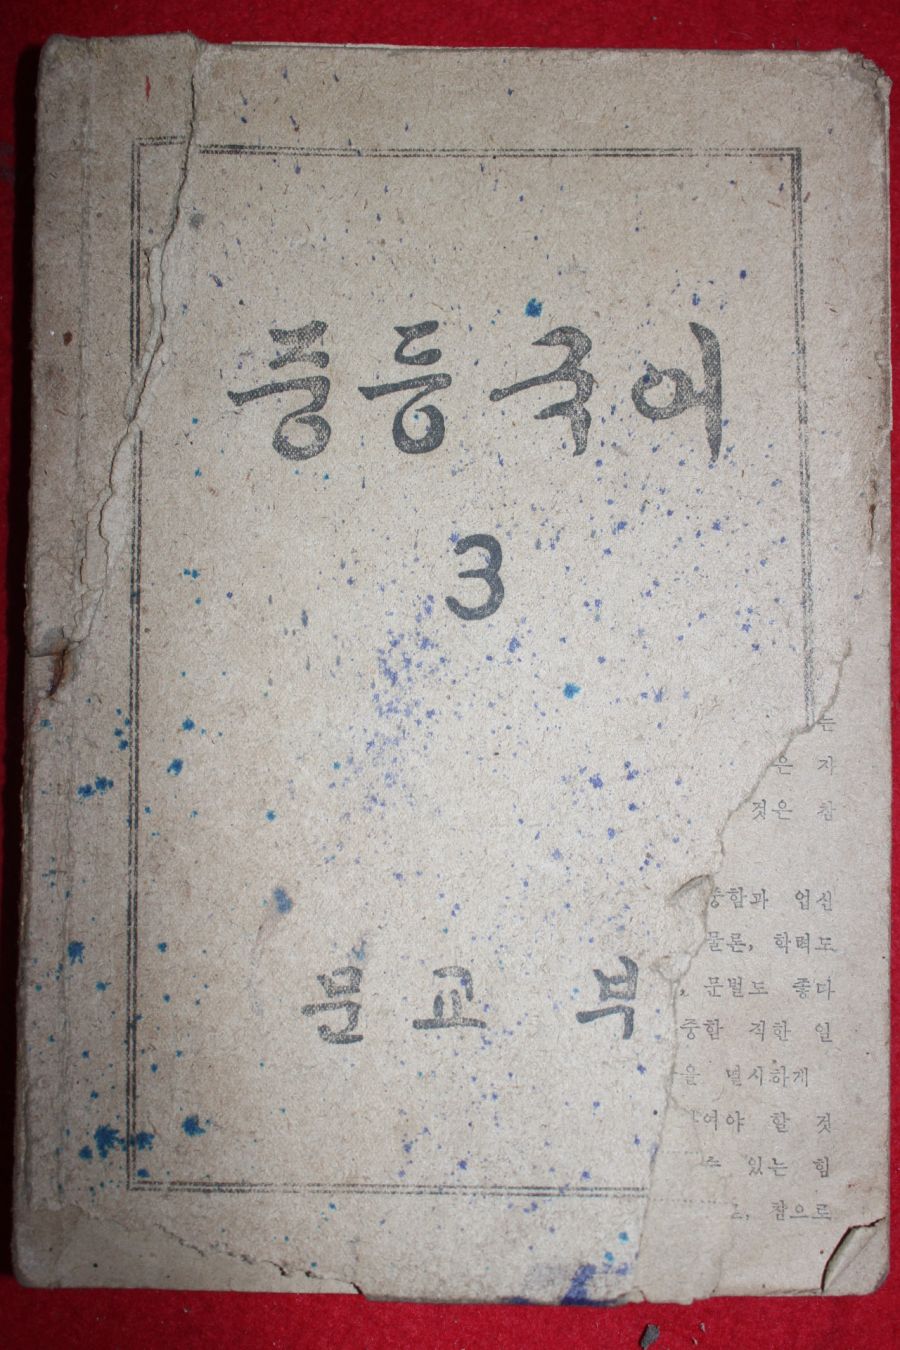 중등국어
3
문교부
는
은 자
것은 참
중함과 업신
물론, 학력도
, 문벌도 좋다
중함 직한 일
을 멸시하게
어야 할 것
수 있는 힘
, 참으로